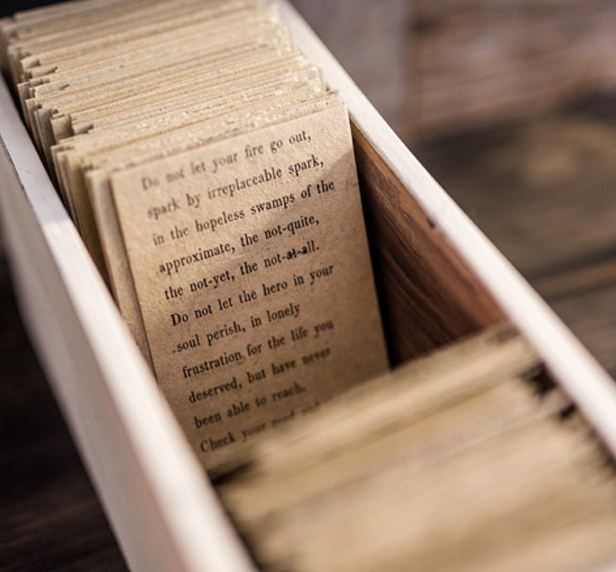 Do not let your fire go out,
spark by irreplaceable spark,
in the hopeless swamps of the
approximate, the not-quite,
the not-yet, the not-at-all.
Do not let the hero in your
soul perish, in lonely
frustration for the life you
deserved, but have never
been able to reach.
Check your road